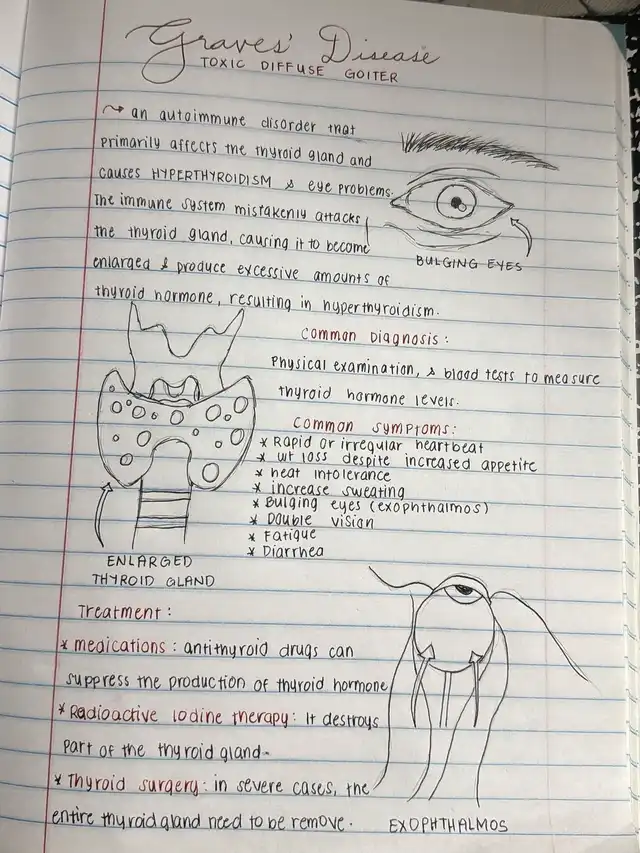 Graves' Disease
TOXIC DIFFUSE GOITER
~> an autoimmune disorder that
primarily affects the thyroid gland and
causes HYPERTHYROIDISM & eye problems.
The immune system mistakenly attacks
the thyroid gland, causing it to become
enlarged & produce excessive amounts of
thyroid hormone, resulting in hyperthyroidism.
BULGING EYES
Common Diagnosis:
Physical examination, & blood tests to measure
thyroid hormone levels.
Common symptoms:
* Rapid or irregular heartbeat
* wt loss despite increased appetite
* heat intolerance
* increase sweating
* Bulging eyes (exophthalmos)
* Double vision
* Fatigue
* Diarrhea
ENLARGED
THYROID GLAND
Treatment:
* medications: antithyroid drugs can
suppress the production of thyroid hormone
* Radioactive Iodine therapy: It destroys
part of the thyroid gland.
* Thyroid surgery: in severe cases, the
entire thyroid gland need to be remove.
EXOPHTHALMOS